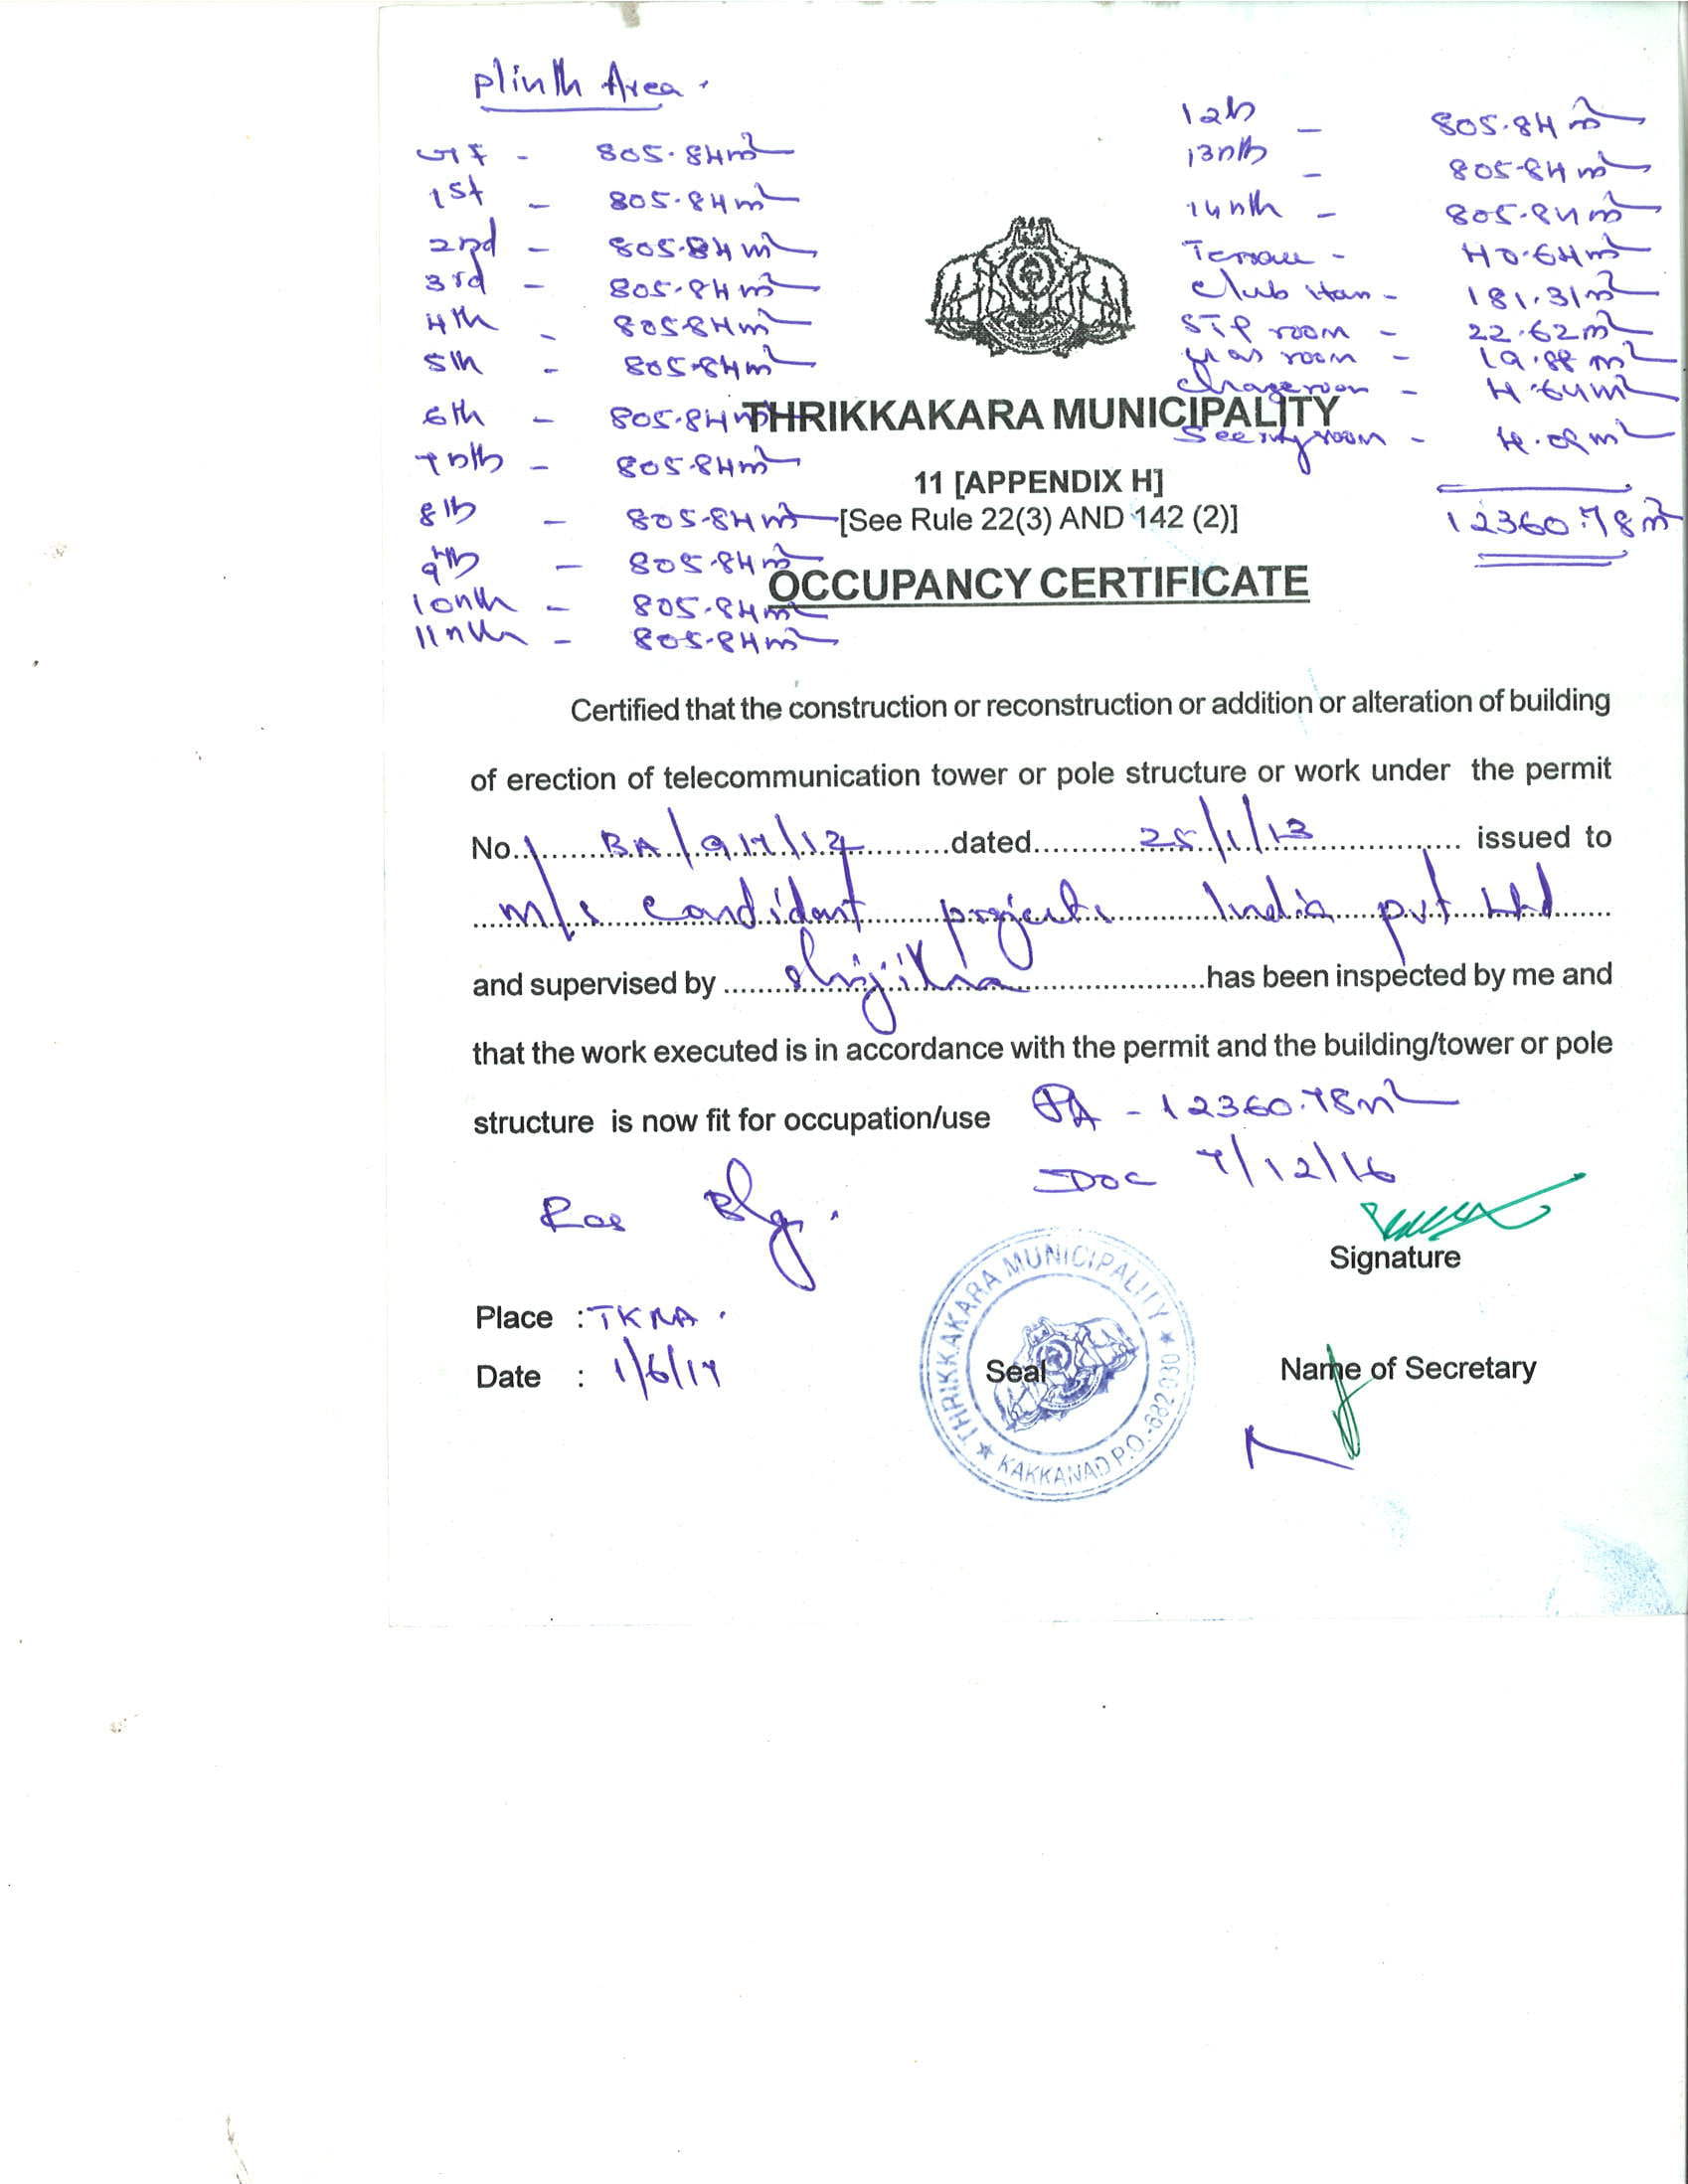 Plinth Area.
GF - 805.84m²
1st - 805.84m²
2nd - 805.84m²
3rd - 805.84m²
4th - 805.84m²
5th - 805.84m²
6th - 805.84m²
7nth - 805.84m²
8th - 805.84m²
9th - 805.84m²
10nth - 805.84m²
11nth - 805.84m²
12th - 805.84m²
13nth - 805.84m²
14nth - 805.84m²
Terrace - 40.64m²
Club - 181.31m²
STP room - 22.62m²
Gas room - 19.88m²
room - 4.64m²
room - m²
12360.78m²
THRIKKAKARA MUNICIPALITY
11 [APPENDIX H]
[See Rule 22(3) AND 142 (2)]
OCCUPANCY CERTIFICATE
Certified that the construction or reconstruction or addition or alteration of building
of erection of telecommunication tower or pole structure or work under the permit
No. BA/917/12 dated 25/1/13 issued to
M/s projects India pvt Ltd
and supervised by has been inspected by me and
that the work executed is in accordance with the permit and the building/tower or pole
structure is now fit for occupation/use PA - 12360.78m²
DOC 7/12/16
Res Blg.
Signature
Place : TKRA.
Date : 1/6/17
Seal
Name of Secretary
THRIKKAKARA MUNICIPALITY
KAKKANAD P.O.-682 030